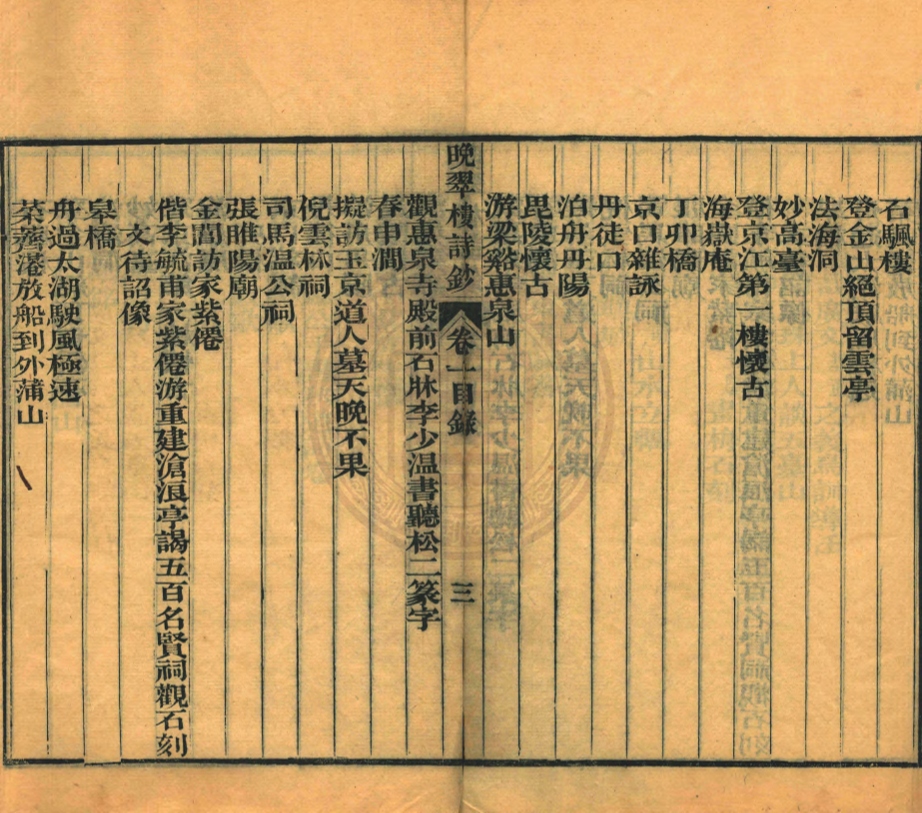 石颿樓
登金山絕頂留雲亭
法海洞
妙高臺
登京江第一樓懷古
海嶽庵
丁卯橋
京口雜詠
丹徒口
泊舟丹陽
毘陵懷古
游梁谿惠泉山
晚翠樓詩鈔 卷一目錄 三
觀惠泉寺殿前石牀李少溫書聽松二篆字
春申澗
擬訪玉京道人墓天晚不果
倪雲林祠
司馬溫公祠
張睢陽廟
金閶訪家紫僊
偕李毓甫家紫僊游重建滄浪亭謁五百名賢祠觀石刻
文待詔像
皋橋
舟過太湖駛風極速
茶薺港放船到外蒲山